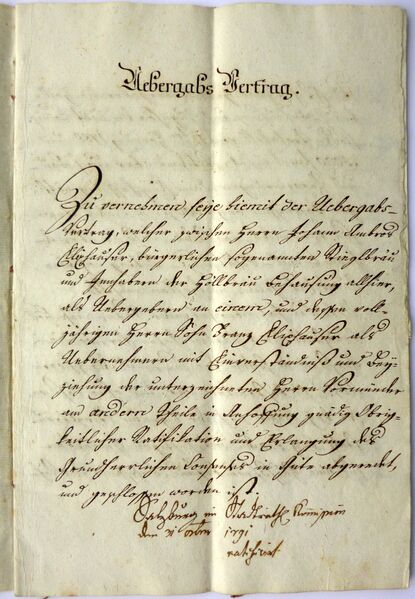 Uebergabs Vertrag.
Zu vernehmen seye hiemit der Uebergabs-
Vertrag, welcher zwischen Herrn Johann Ambros
Elixhauser, bürgerlichen sogenannten Stieglbräu
und Inhabern der Höllbräu Behausung allhier,
als Uebergebern an einem, und dessen voll-
jährigen Herrn Sohn Franz Elixhauser als
Uebernehmern mit Einverständniß und Bey-
ziehung der unterzeichneten Herrn Vormünder
am andern Theile in Anhoffung gnädig Obrig-
keitlicher Ratifikation und Erlangung des
Grundherrlichen Consenses in Güte abgeredet,
und geschlossen worden ist.
Salzburg im Stadtrath
den 1791
ratificirt